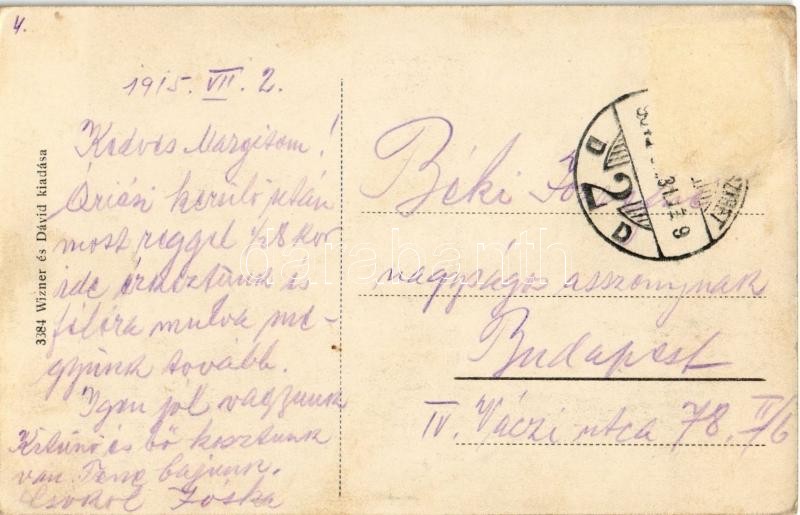 4.
1915. VII. 2.
Kedves Margitom!
Óriási kerülő után
most reggel 1/28kor
ide érkeztünk és
félóra mulva me-
gyünk tovább.
Igen jól vagyunk
Kitünő és bő kosztunk
van
bajunk.
Csókol Jóska
3384 Wizner és Dávid kiadása
Béki
nagyságos asszonynak
Budapest
IV. Váczi utca 78. II/6
D 2 D
darabanth